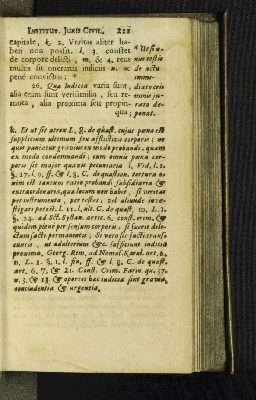 INSTITUT. JURIS CIVIL. 221
capitale, k. 2. Veritas aliter ha-
beri non possit. l. 3. constet
de corpore delicti, m. & 4. reus
multis sit oneratus indiciis n. &
pene convictus; *
26. Quæ Indicia varia sunt,
alia enim sunt verisimilia, seu re-
mota, alia proxima seu propin-
qua;
* Ut sæ-
nus testis
de actu
imme-
diato eri-
minis ju-
rato de-
ponat.
k. Et ut sit atrox L, 8. de quæst. cujus pœna est
supplicium ultimum seu afflictiva corporis; ne
quis punietur gravius ex modo probandi, quam
ex modo condemnandi; cum omnis pœna cor-
poris sit major quavis pecuniaria l. Vid, l. 21.
§. 17. l. 9. ff. & l. 8. C. de quæstion. tortura e-
nim est tantum ratio probandi subsidiaria &
extraordinaria, quæ locum non habet, si veritas
per instrumenta, per testes, vel aliunde inve-
stigari potest. l. 12. l. ult. C. de quæst. m, L. 1.
§. 24. ad SCt. Syllan. artic. 6. const. crim. &
quidem plene per sensum corporis, si fuerit deli-
ctum facti permanentis; Si vero sit facti transe
euntis, ut adulterium &c. sufficiunt indicia
proxima, Georg. Rem. ad Nemes. K. art. art. 6.
n. L. 1. §. 1. l. fin. ff. & l. 8. C. de quæst.
art. 6. 7. & 21. Const. Crim. Farin. qu. 37.
n. 3. & 13. & oportet hæc indicia sint gravia,
concludentia & urgentia,